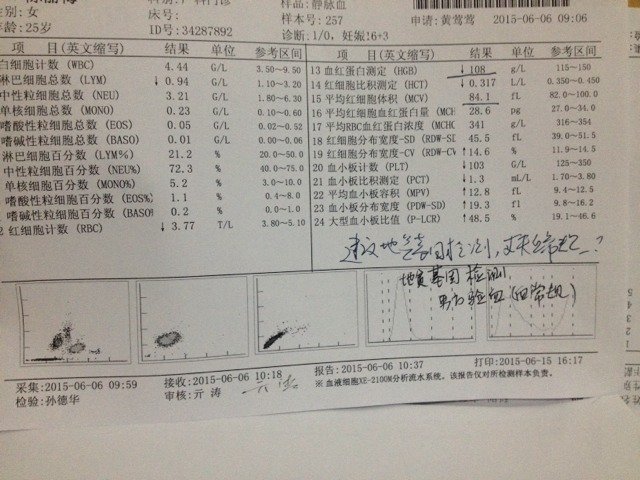 性别:女
床号:
样品:静脉血
年龄:25岁
ID号:34287892
样本号:257
诊断:1/0, 妊娠16+3
申请:黄莺莺 2015-06-06 09:06
项 目(英文缩写) 结果 单位 参考区间
白细胞计数 (WBC) 4.44 G/L 3.50~9.50
淋巴细胞总数 (LYM) ↓ 0.94 G/L 1.10~3.20
中性粒细胞总数 (NEU) 3.21 G/L 1.80~6.30
单核细胞总数 (MONO) 0.23 G/L 0.10~0.60
嗜酸性粒细胞总数 (EOS) 0.05 G/L 0.02~0.52
嗜碱性粒细胞总数 (BASO) 0.01 G/L 0.00~0.06
淋巴细胞百分数 (LYM%) 21.2 % 20.0~50.0
中性粒细胞百分数 (NEU%) 72.3 % 40.0~75.0
单核细胞百分数 (MONO%) 5.2 % 3.0~10.0
嗜酸性粒细胞百分数 (EOS%) 1.1 % 0.4~8.0
嗜碱性粒细胞百分数 (BASO% 0.2 % 0.0~1.0
2 红细胞计数 (RBC) ↓ 3.77 T/L 3.80~5.10
项 目(英文缩写) 结果 单位 参考区间
13 血红蛋白测定 (HGB) ↓ 108 g/L 115~150
14 红细胞比积测定 (HCT) ↓ 0.317 L/L 0.350~0.450
15 平均红细胞体积 (MCV) 84.1 fL 82.0~100.0
16 平均红细胞血红蛋白量 (MCH 28.6 pg 27.0~34.0
17 平均RBC血红蛋白浓度 (MCHC 341 g/L 316~354
18 红细胞分布宽度-SD (RDW-SD 45.5 fL 39.0~51.5
19 红细胞分布宽度-CV (RDW-CV ↑ 14.6 % 11.9~14.5
20 血小板计数 (PLT) ↓ 103 G/L 125~350
21 血小板比积测定 (PCT) ↓ 1.3 mL/L 1.70~3.80
22 平均血小板体积 (MPV) ↑ 12.8 fL 9.4~12.5
23 血小板分布宽度 (PDW-SD) ↑ 19.3 fL 9.8~16.2
24 大型血小板比值 (P-LCR) ↑ 48.5 % 19.1~46.6
建议地贫基因检测,丈夫
地贫基因检测
男方验血(血常规)
采集:2015-06-06 09:59
接收:2015-06-06 10:18
报告:2015-06-06 10:37
打印:2015-06-15 16:17
检验:孙德华
审核:亓 涛
※ 血液细胞XE-2100M分析流水系统。该报告仅对所检测样本负责。